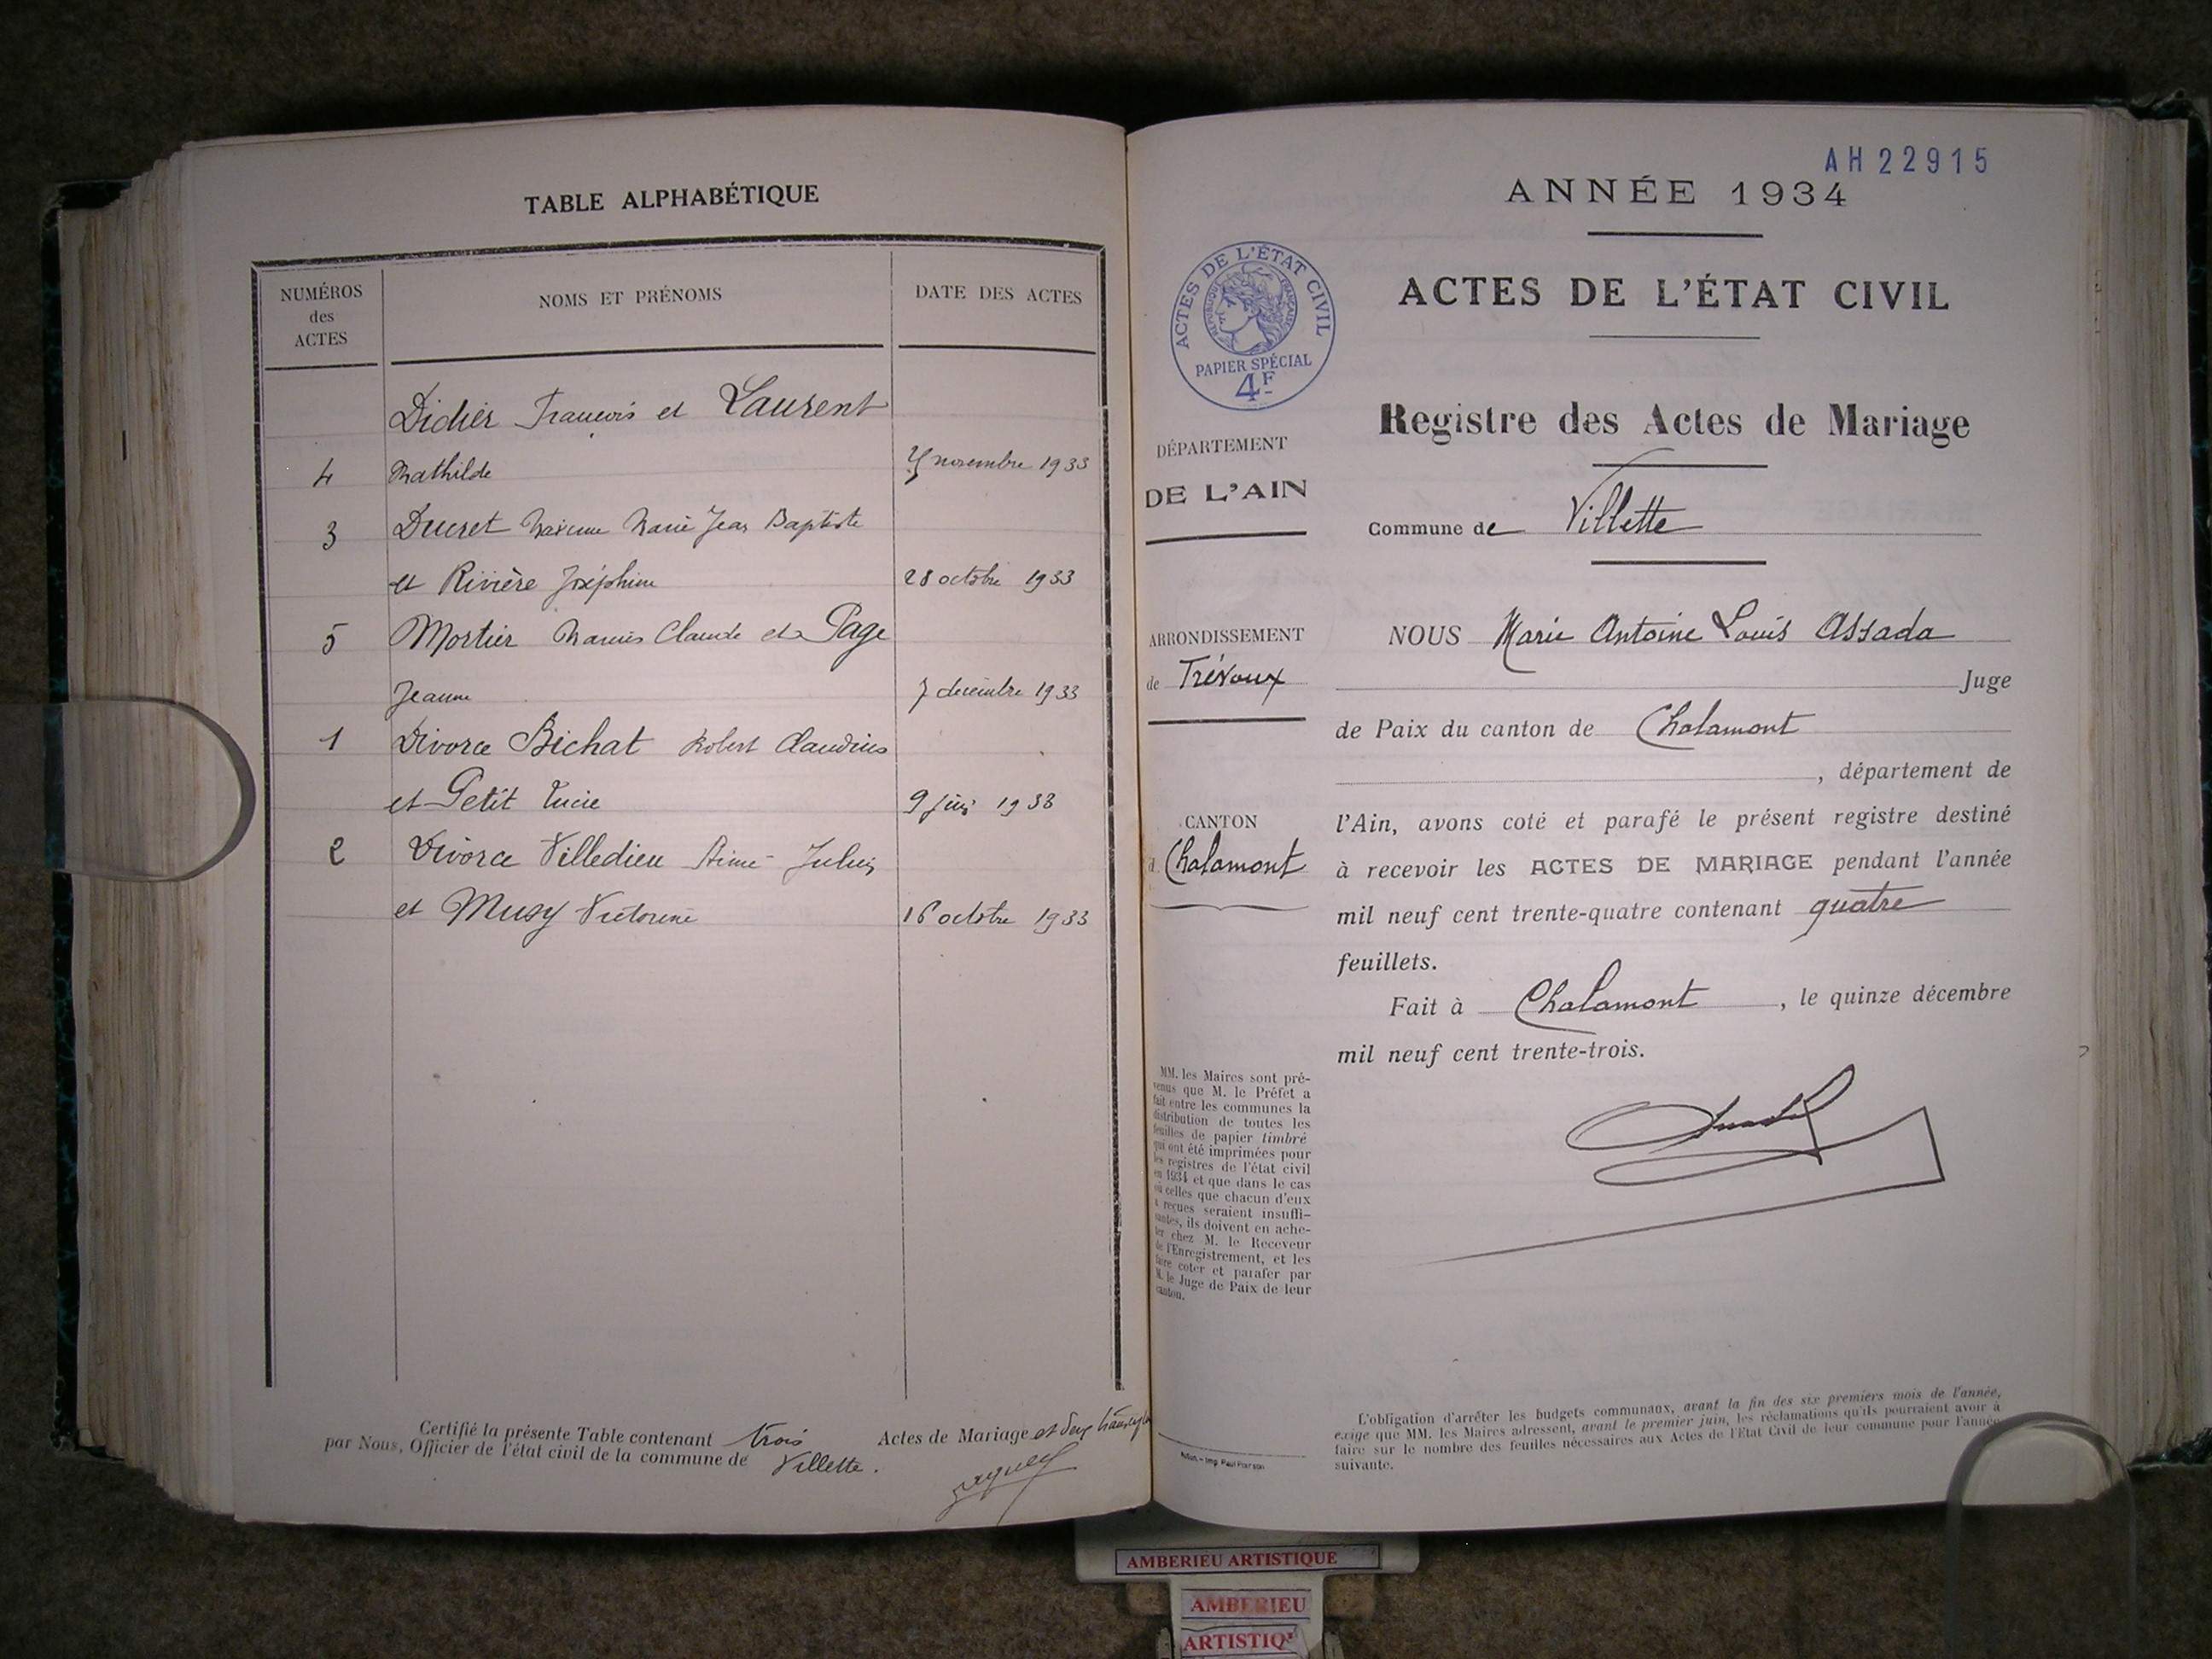 TABLE ALPHABÉTIQUE
NUMÉROS
des
ACTES
NOMS ET PRÉNOMS
DATE DES ACTES
Didier François et Laurent
4 Mathilde novembre 1933
3 Ducret Marie Jean Baptiste
et Rivière Joséphine 28 octobre 1933
5 Mortier Claude et Page
Jeanne 7 décembre 1933
1 Divorce Bichat Robert Claudius
et Petit Lucie 9 1933
2 Divorce Villedieu Aimé Julien
et Musy Victorine 16 octobre 1933
Certifié la présente Table contenant trois Actes de Mariage et deux
par Nous, Officier de l'état civil de la commune de Villette.
AH 22915
ANNÉE 1934
ACTES DE L'ÉTAT CIVIL
ACTES DE L'ÉTAT CIVIL
RÉPUBLIQUE FRANÇAISE
PAPIER SPÉCIAL
4F
Registre des Actes de Mariage
DÉPARTEMENT
DE L'AIN
Commune de Villette
ARRONDISSEMENT
de Trévoux
CANTON
d Chalamont
NOUS Marie Antoine Louis Assada
Juge
de Paix du canton de Chalamont
, département de
l'Ain, avons coté et parafé le présent registre destiné
à recevoir les ACTES DE MARIAGE pendant l'année
mil neuf cent trente-quatre contenant quatre
feuillets.
Fait à Chalamont, le quinze décembre
mil neuf cent trente-trois.
MM. les Maires sont pré-
venus que M. le Préfet a
fait entre les communes la
distribution de toutes les
feuilles de papier timbré
qui ont été imprimées pour
les registres de l'état civil
en 1934 et que dans le cas
où celles que chacun d'eux
a reçues seraient insuffi-
santes, ils doivent en ache-
ter chez M. le Receveur
de l'Enregistrement, et les
faire coter et parafer par
M. le Juge de Paix de leur
canton.
L'obligation d'arrêter les budgets communaux, avant la fin des six premiers mois de l'année,
exige que MM. les Maires adressent, avant le premier juin, les réclamations qu'ils pourraient avoir à
faire sur le nombre des feuilles nécessaires aux Actes de l'Etat Civil de leur commune pour l'année
suivante.
AMBERIEU ARTISTIQUE
AMBERIEU
ARTISTIQ